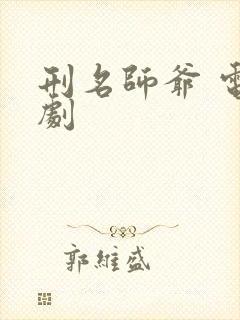 刑名師爺 電
劇
郭維盛